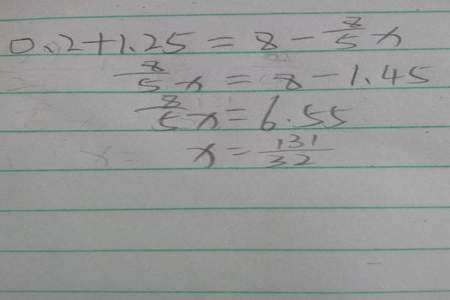 0.2+1.25=8-\frac{8}{5}x
\frac{8}{5}x=8-1.45
\frac{8}{5}x=6.55
x=\frac{131}{32}